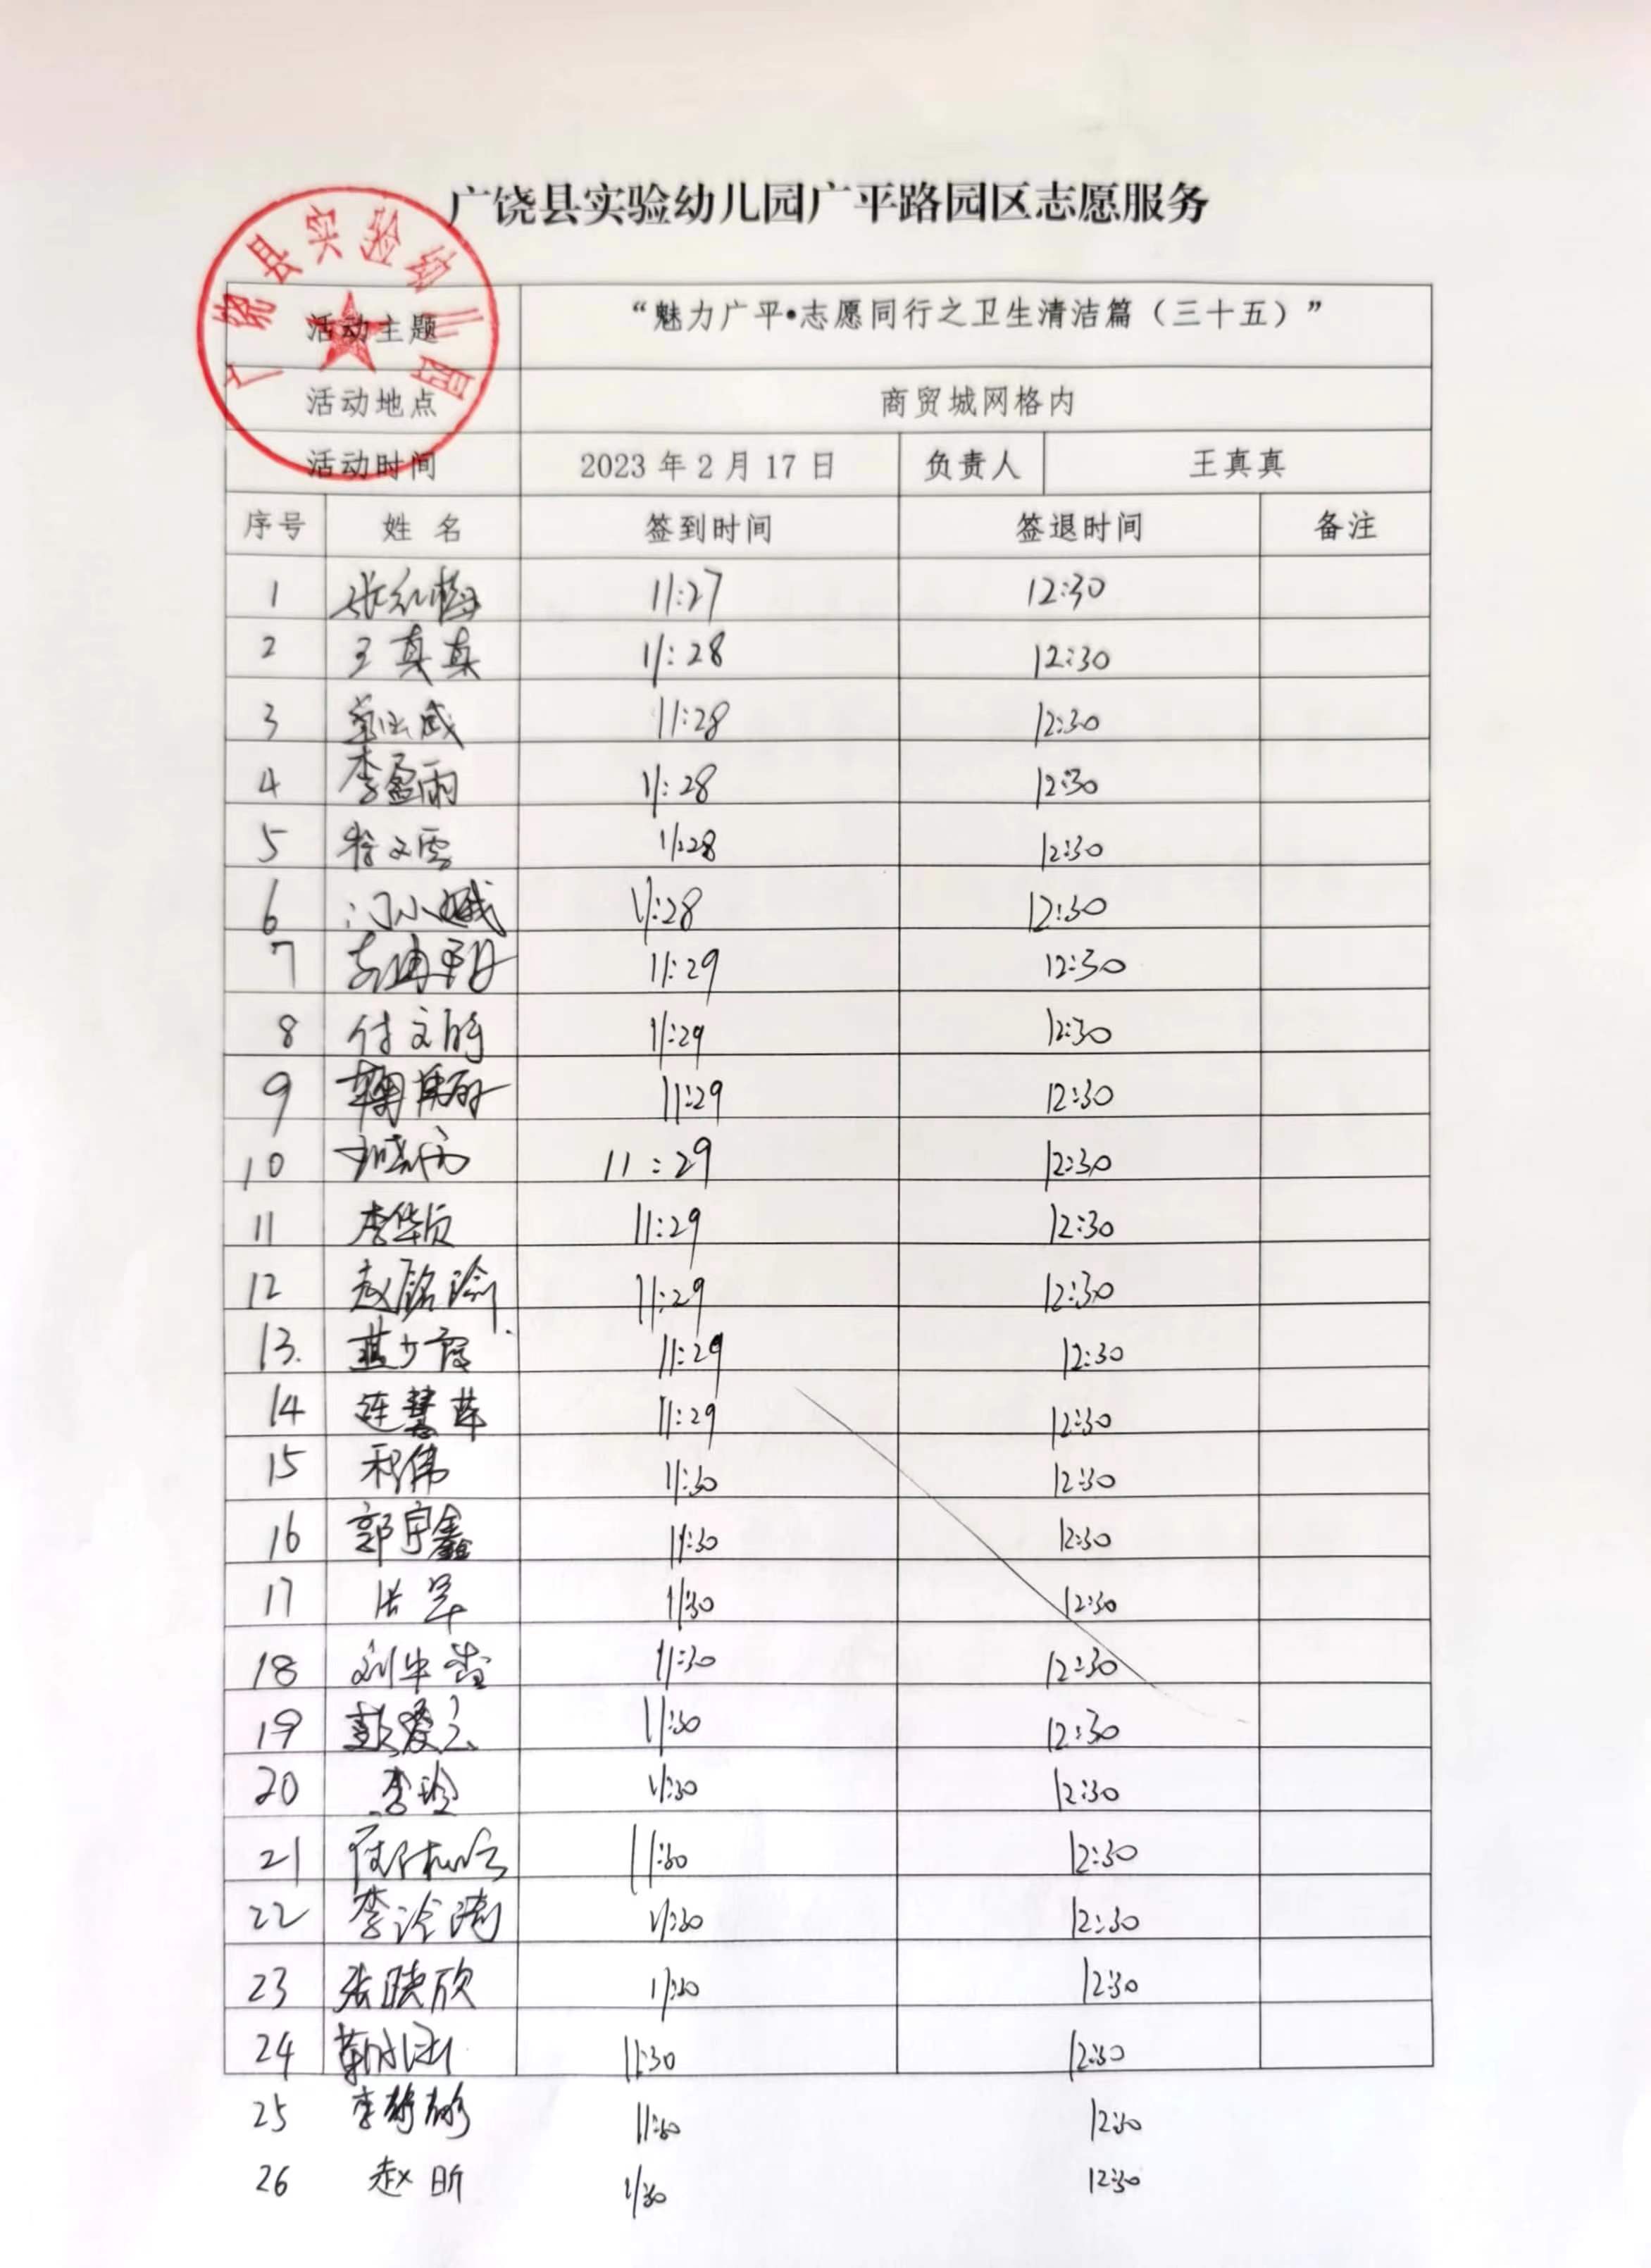 广饶县实验幼儿园广平路园区志愿服务
广饶县实验幼儿园
活动主题 “魅力广平•志愿同行之卫生清洁篇（三十五）”
活动地点 商贸城网格内
活动时间 2023年2月17日 负责人 王真真
序号 姓名 签到时间 签退时间 备注
1 张红梅 11:27 12:30
2 王真真 11:28 12:30
3 11:28 12:30
4 李盈雨 11:28 12:30
5 徐文雪 11:28 12:30
6 11:28 12:30
7 11:29 12:30
8 付文婷 11:29 12:30
9 11:29 12:30
10 11:29 12:30
11 李华贞 11:29 12:30
12 赵铭瑜 11:29 12:30
13. 燕少霞 11:29 12:30
14 连慧苹 11:29 12:30
15 程伟 11:30 12:30
16 郭宇鑫 11:30 12:30
17 11:30 12:30
18 11:30 12:30
19 彭爱云 11:30 12:30
20 李玲 11:30 12:30
21 11:30 12:30
22 11:30 12:30
23 张晓欣 11:30 12:30
24 11:30 12:30
25 11:30 12:30
26 赵昕 11:30 12:30